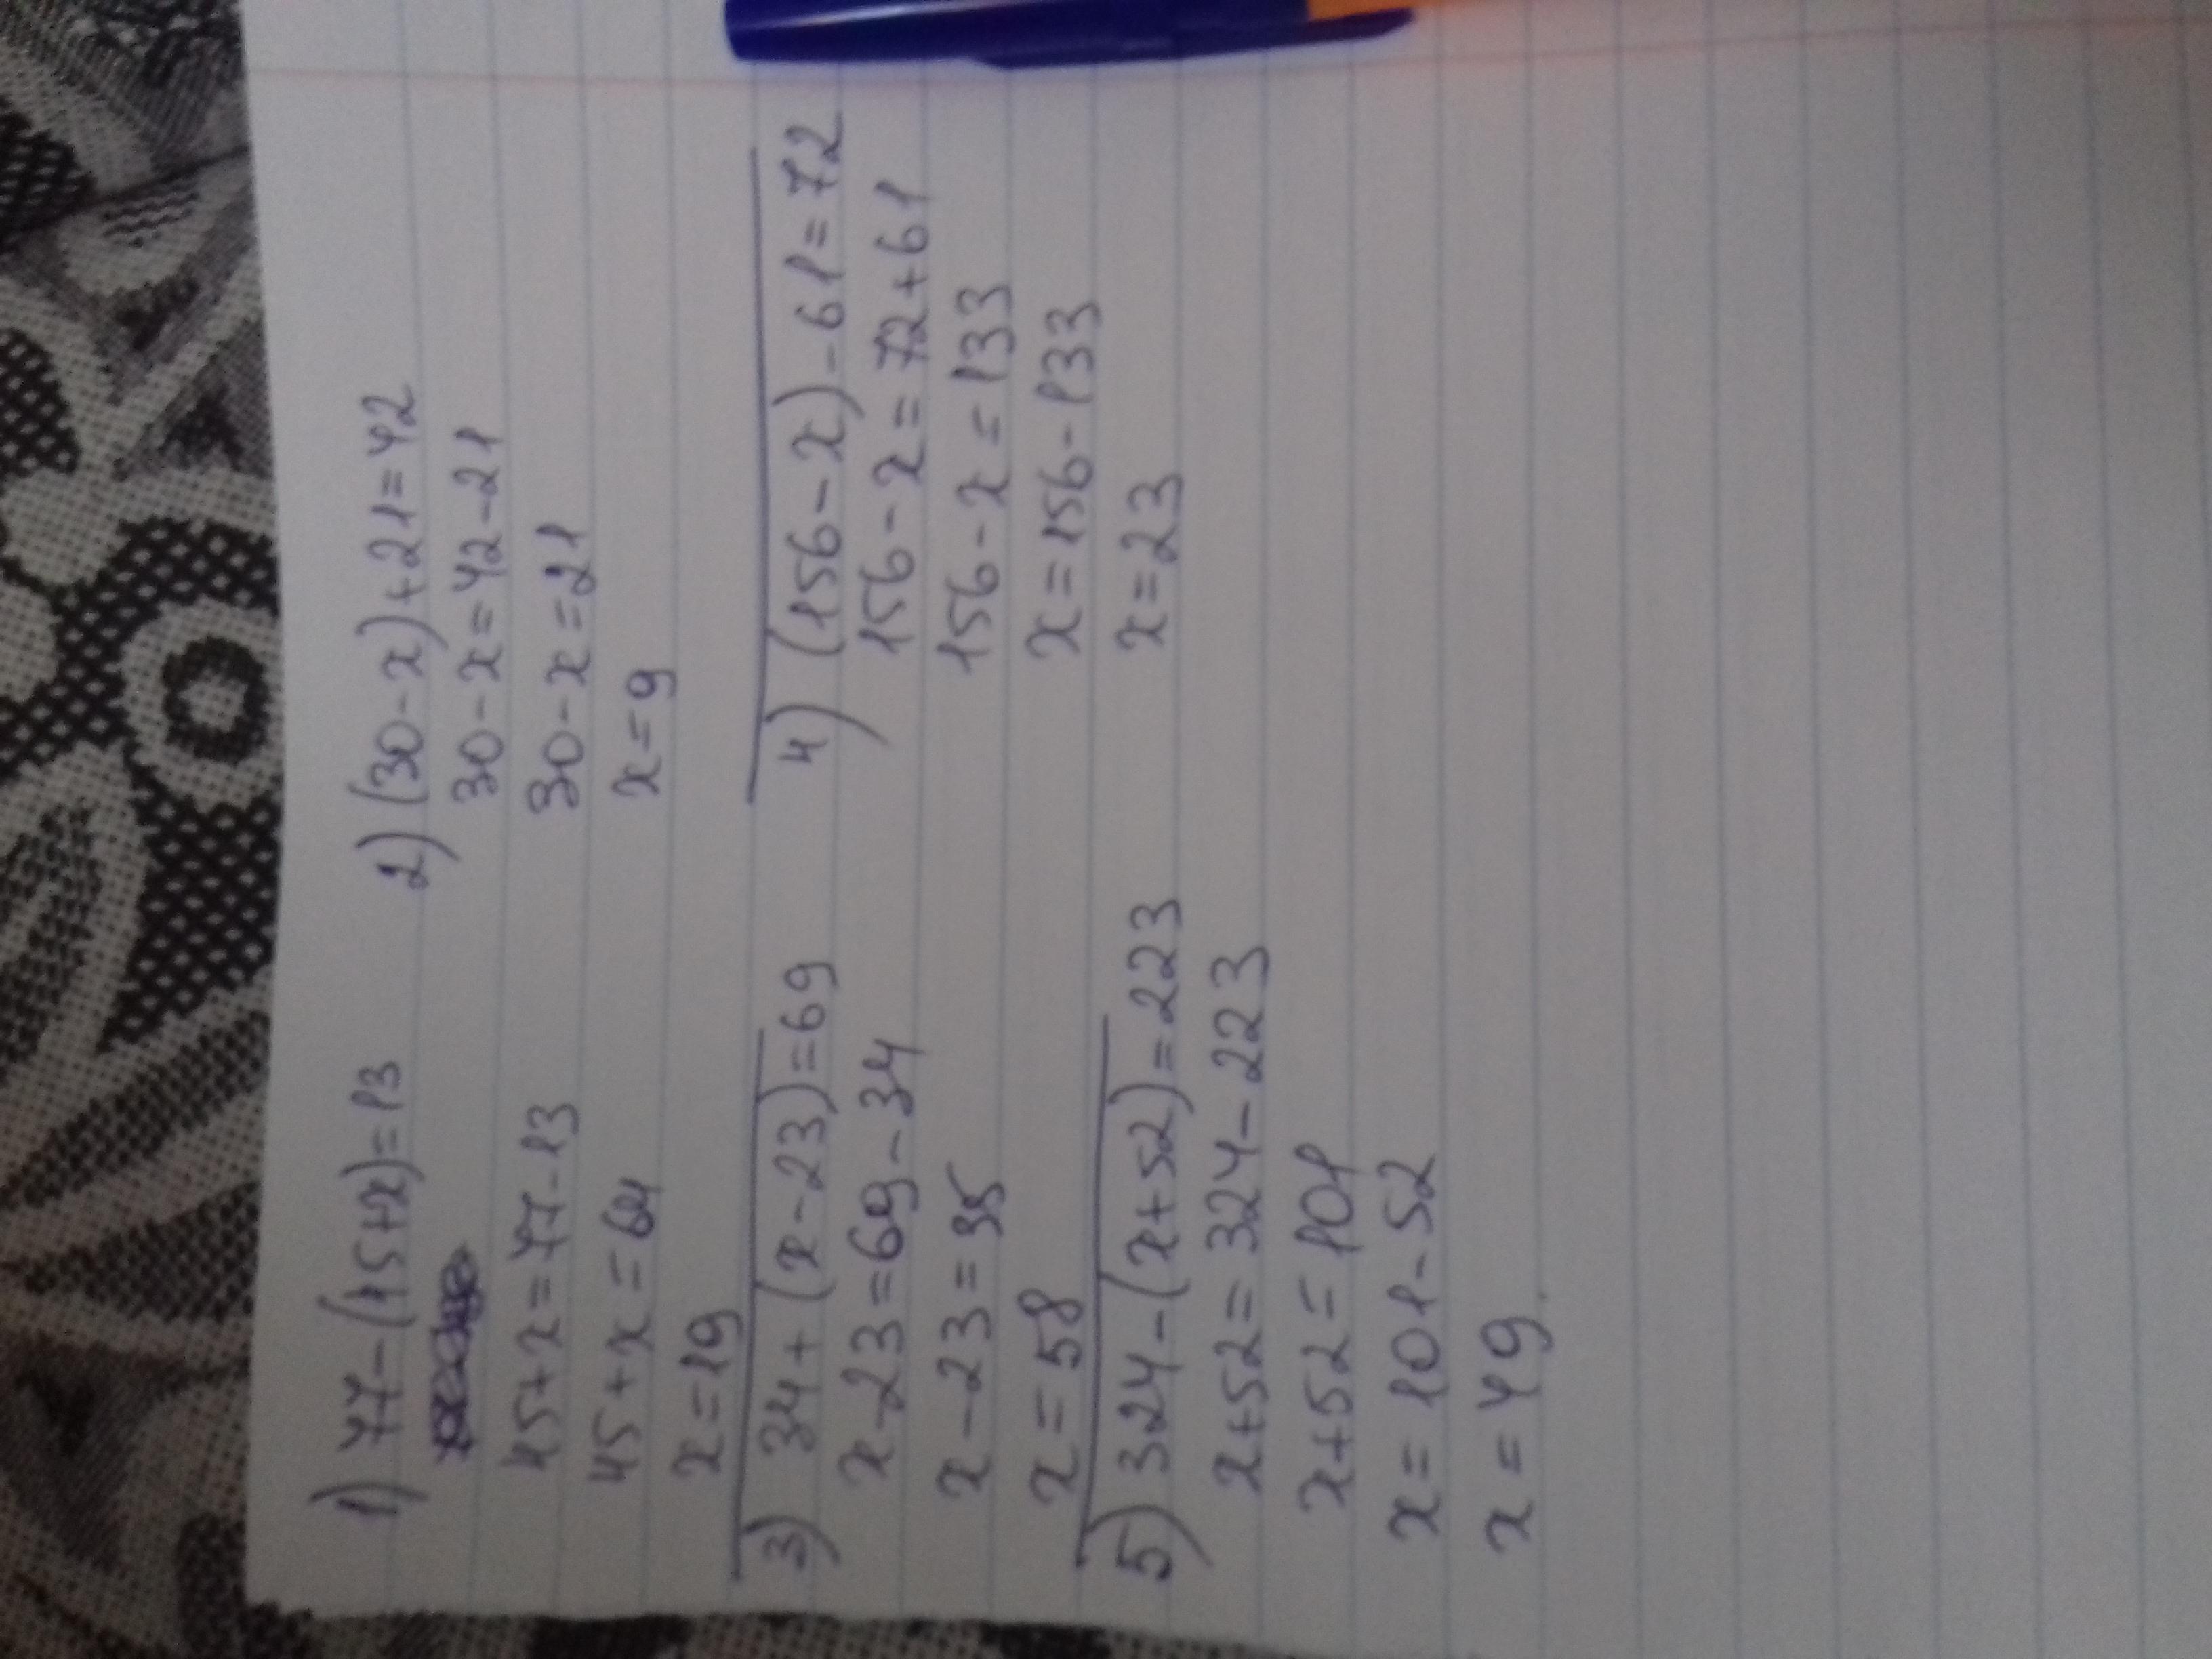 1) 77-(45+x)=13
45+x=77-13
45+x=64
x=19
2) (30-x)+21=42
30-x=42-21
30-x=21
x=9
3) 34+(x-23)=69
x-23=69-34
x-23=35
x=58
4) (156-x)-61=72
156-x=72+61
156-x=133
x=156-133
x=23
5) 324-(x+52)=223
x+52=324-223
x+52=101
x=101-52
x=49.